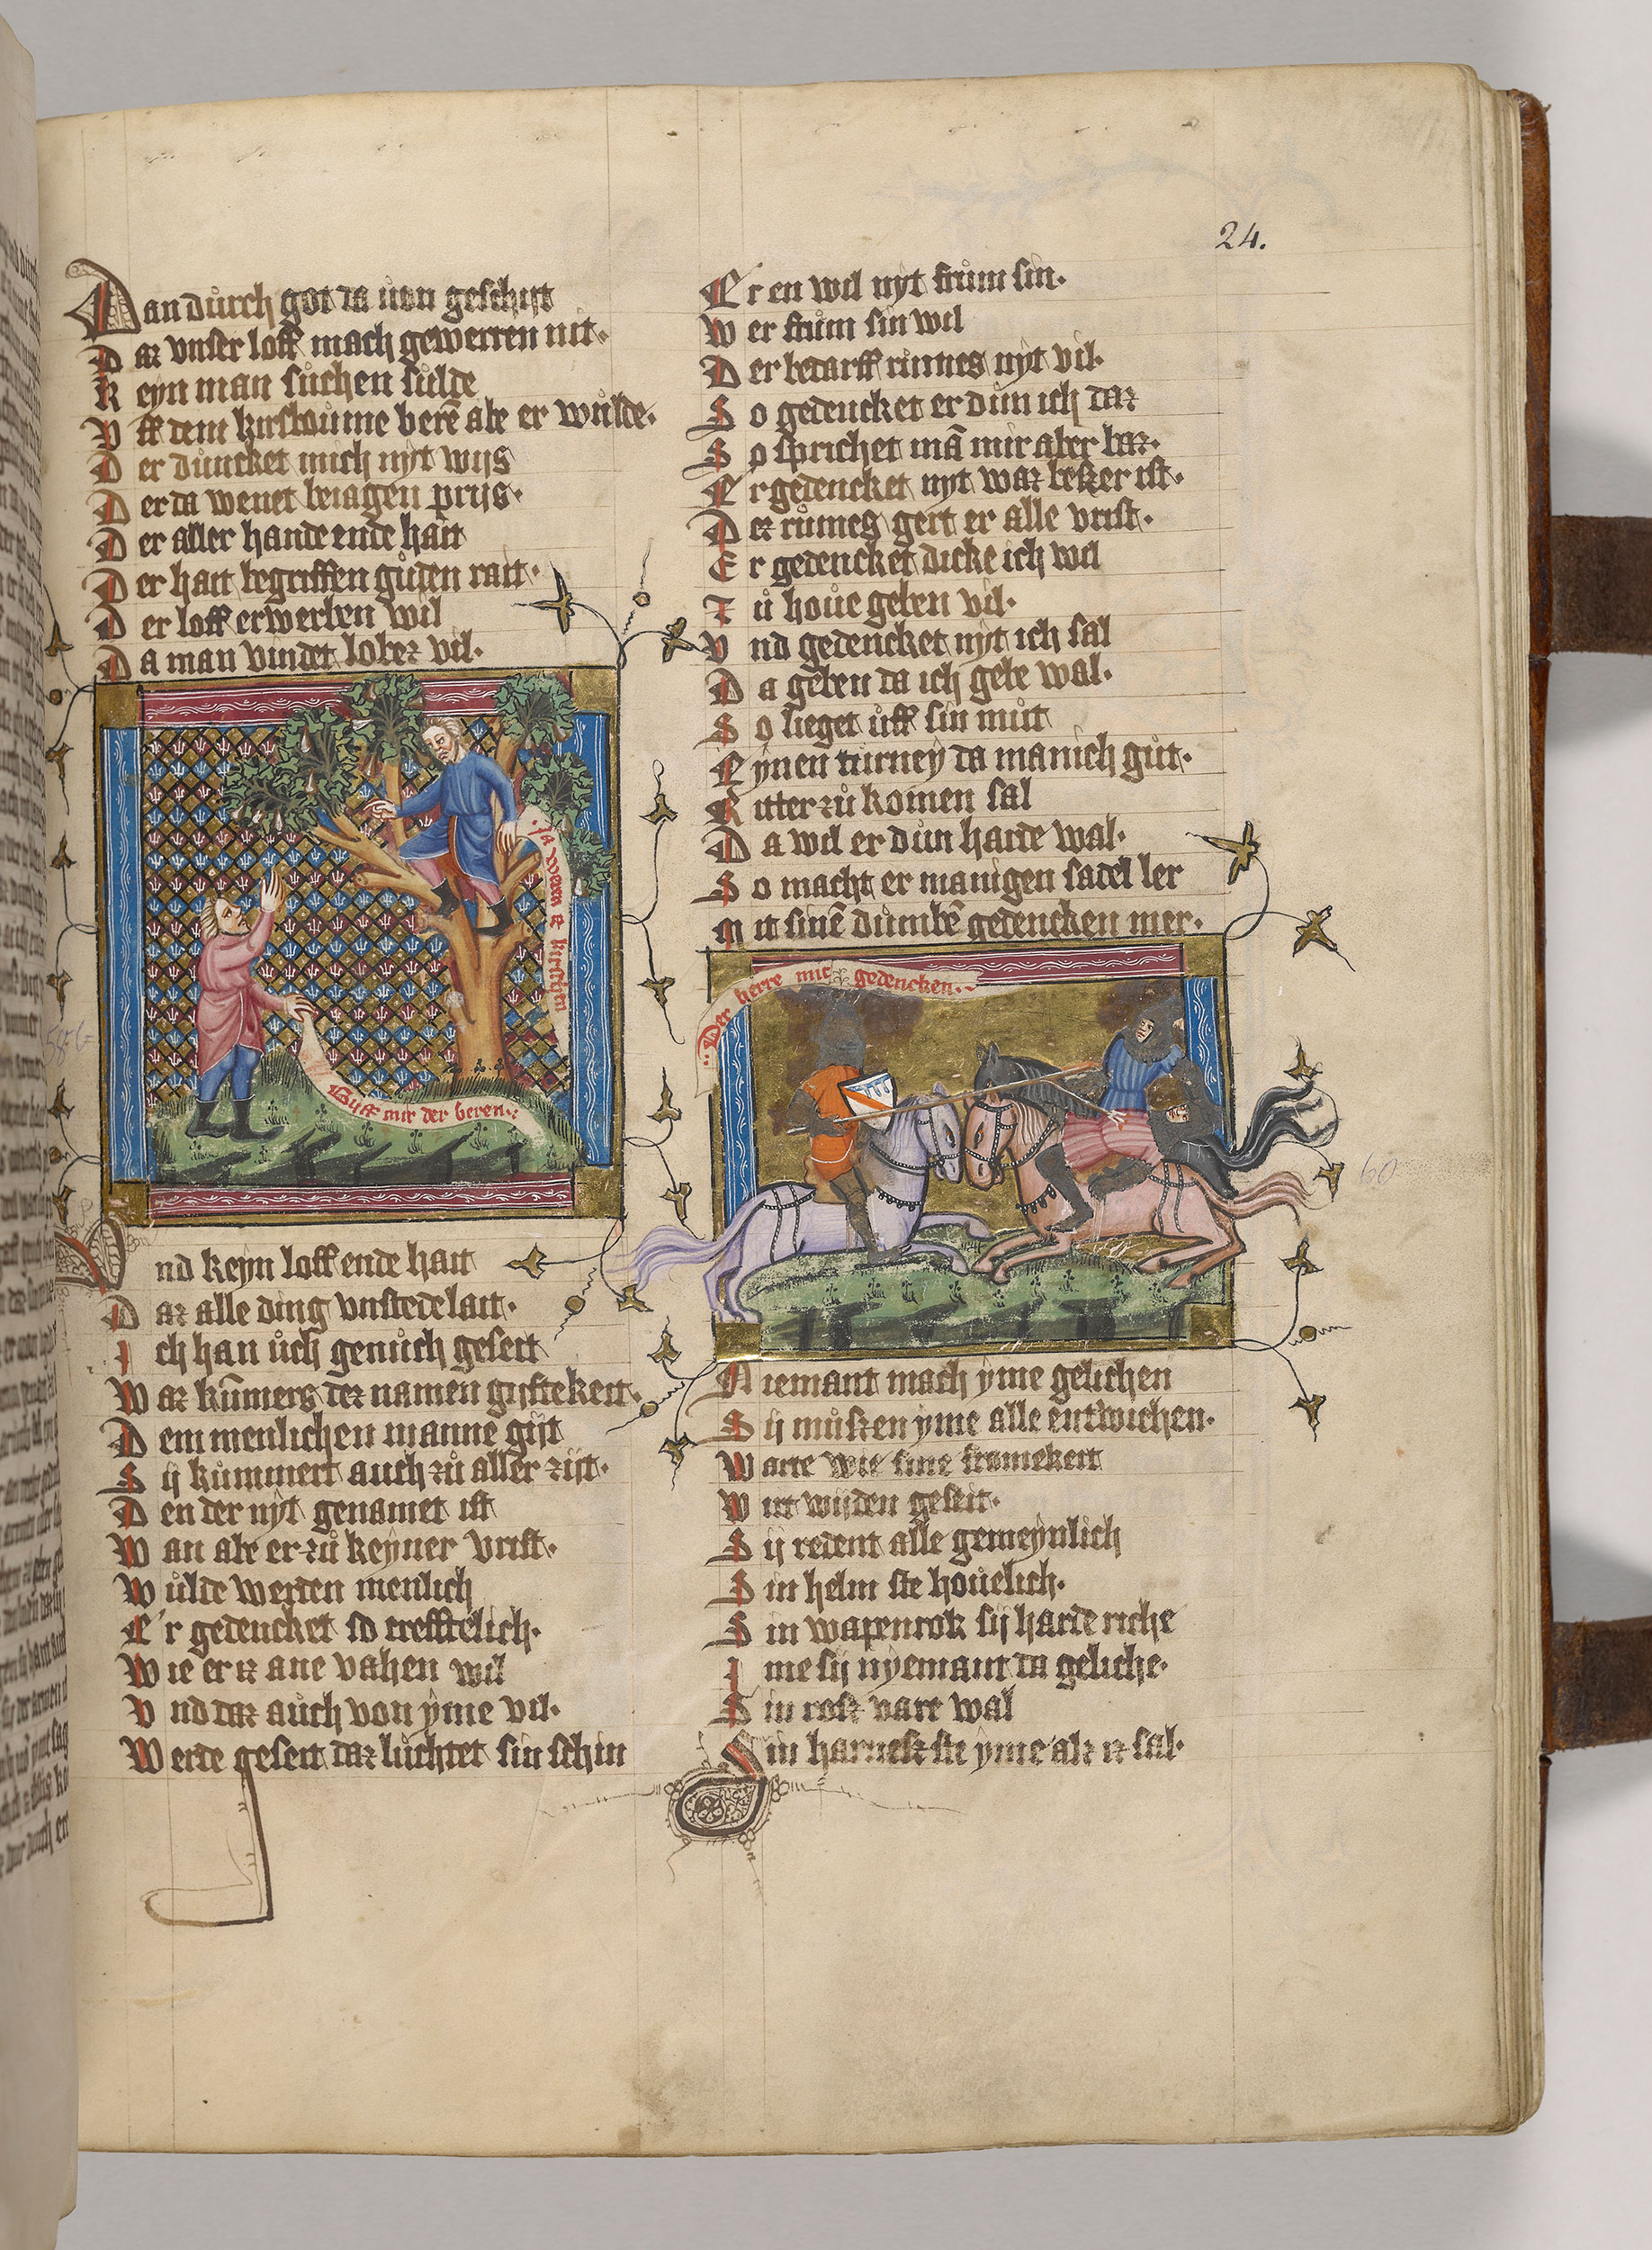 24.
Dan důrch got da uon geschijt
Daz vnser loff mach gewerren nit·
Keyn man sůchen sůlde
Vff dem kirsboůme berē abe er wůlde·
Der důncket mich nyt wijs
Der da wenet beiagen prijs·
Der aller hande ende hait
Der hait begriffen gůden rait·
Der loff erwerben wil
Da man vindet lobez vil·
ja wenn iz kirschen
Gijff mir der beren·
Vnd keyn loff ende hait
Daz alle ding vnstede lait·
Ich han ůch genůch geseit
Waz kům̄ers der namen gijftekeit·
Dem menlichen manne gijt
Sij kům̄mert auch zů aller zijt·
Den der nyt genamet ist
Wan abe er zů keyner vrist·
Wůlde werden menlich
Er gedencket so trefftelich·
Wie er iz ane vahen wil
Vnd daz aůch von yme vil·
Werde geseit daz lůchtet sin schin
Er en wil nyt frům sin·
Wer frům sin wil
Der bedarff růmes nyt vil·
So gedencket er důn ich daz
So sprichet mā mir aber baz·
Er gedencket nyt waz beßer ist·
Dez růmes gert er alle vrist·
Er gedencket dicke ich wil
Zů houe geben vil·
Vnd gedencket nyt ich sal
Da geben da ich gebe wal·
So lieget ůff sin můt
Eynen turney da manich gůt·
Ritter zů komen sal
Da wil er důn harde wal·
So macht er manigen sadel ler
Mit sinē důmbē gedencken mer·
Der herre mit gedencken·
Niemant mach yme gelichen
Sij můßen yme alle entwichen·
Warte wie sine fromekeit
Wirt wijden geseit·
Sij redent alle gemeynlich
Sin helm ste houelich·
Sin wapenrok sij harde riche
Ime sij nyemant da geliche·
Sin roß vare wal
Sin harnesk ste yme alz iz sal·
60